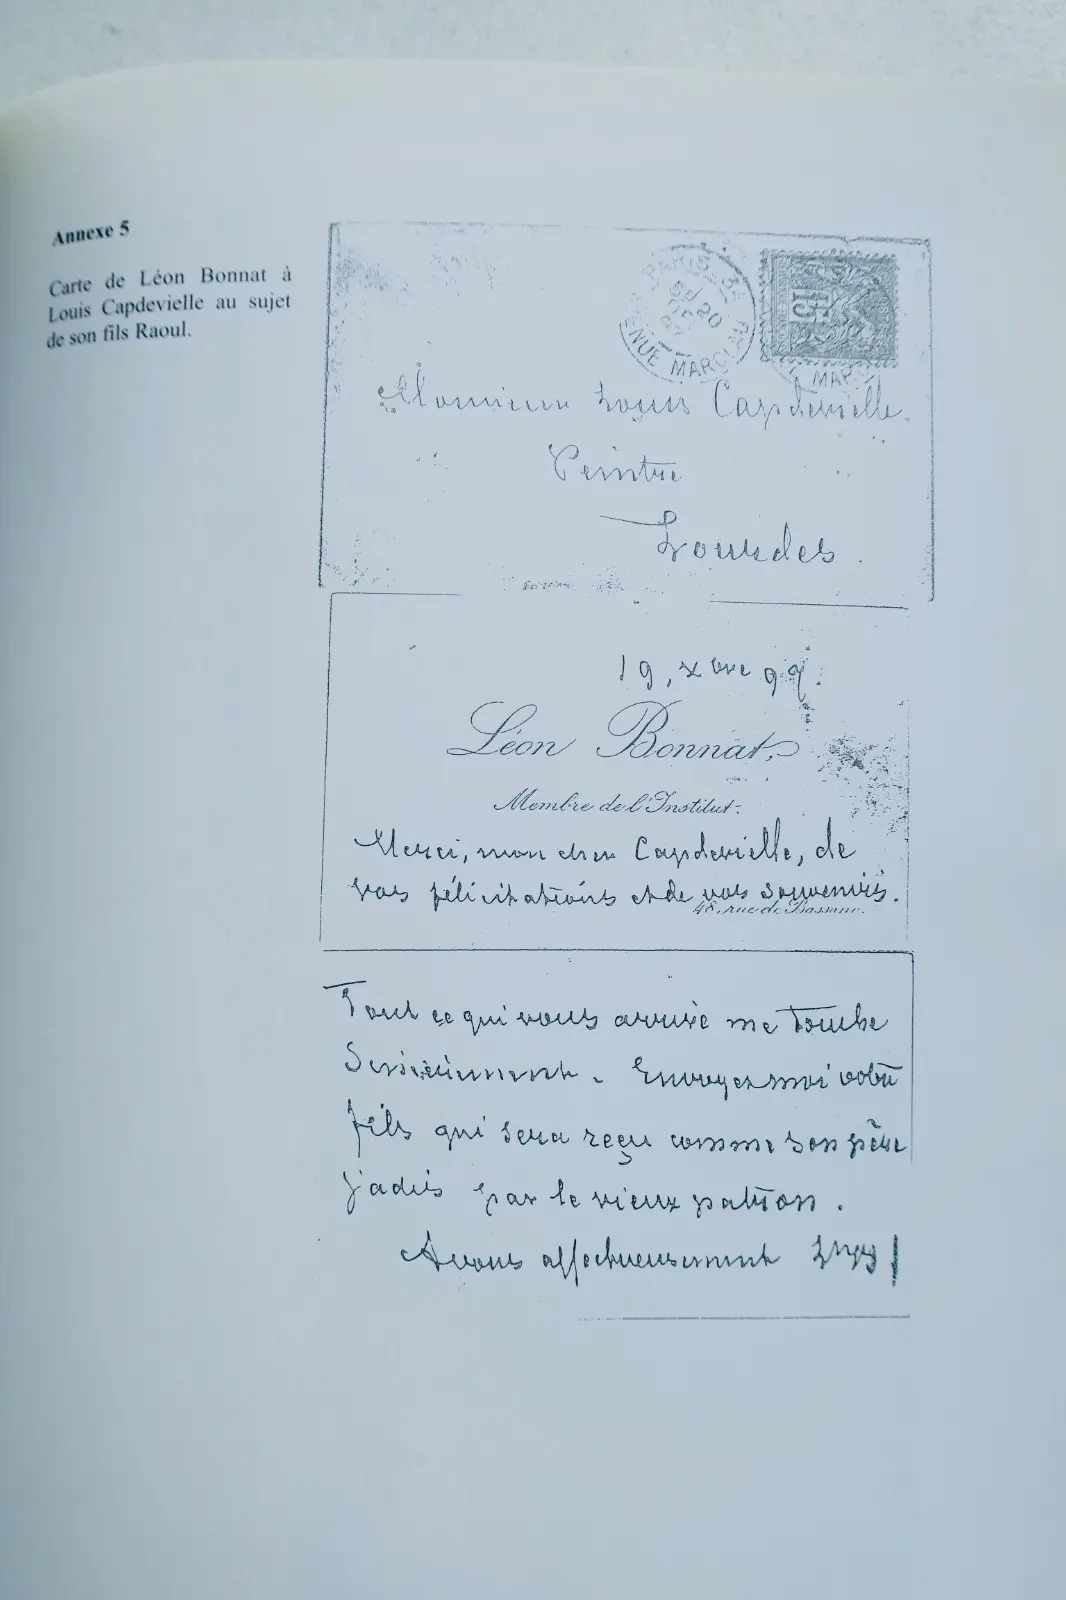 Annexe 5
Carte de Léon Bonnat à
Louis Capdevielle au sujet
de son fils Raoul.
PARIS
20
AVENUE MARCEAU
15
MAR
Monsieur Louis Capdevielle.
Peintre
Lourdes.
19, Xbre
Léon Bonnat,
Membre de l'Institut.
Merci, mon cher Capdevielle, de
vos félicitations et de vos souvenirs.
48, rue de Bassano.
Tout ce qui vous arrive me touche
Sérieusement. Envoyez moi votre
fils qui sera reçu comme son père
jadis par le vieux patron.
A vous affectueusement